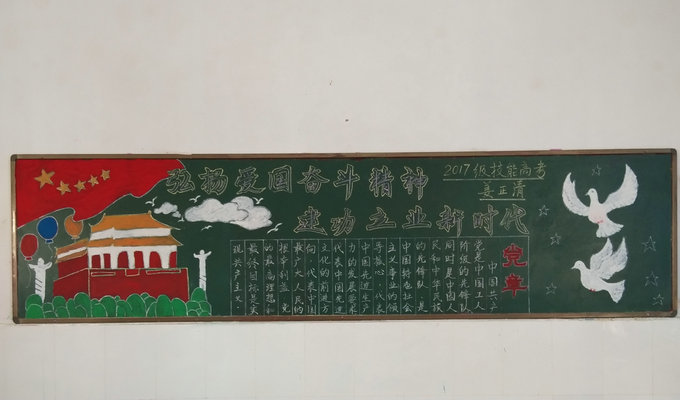 弘扬爱国奋斗精神
建功立业新时代
2017级技能高考
党章
中国共产
党是中国工人
阶级的先锋队,
同时是中国人
民和中华民族
的先锋队,是
中国特色社会
主义事业的领
导核心,代表
中国先进生产
力的发展要求
代表中国先进
文化的前进方
向,代表中国
最广大人民的
根本利益。党
的最高理想和
最终目标是实
现共产主义.